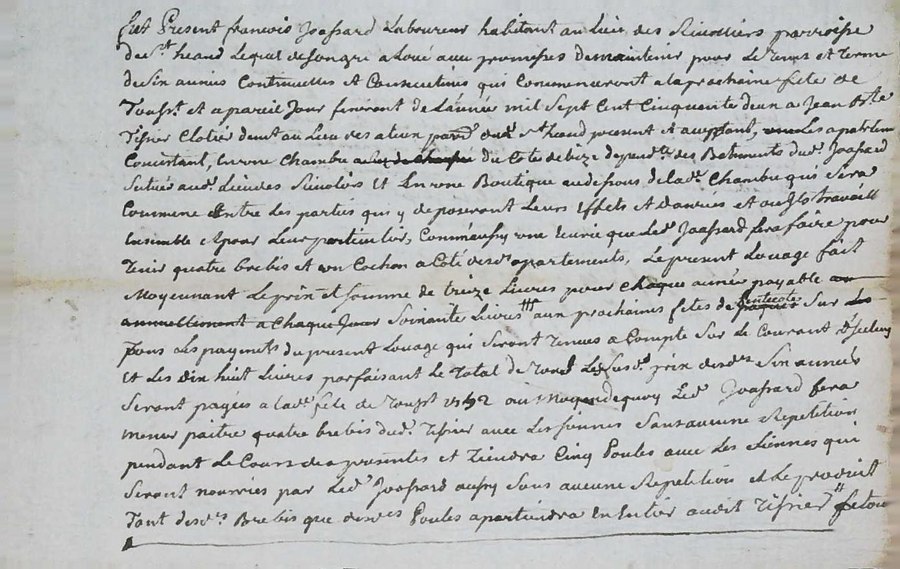 fut Present françois Joassard Laboureur habitant au Lieu des Rivolliers parroisse
de St heand Lequel de son gré a Loué avec promesses de maintenir pour Le Tems et Terme
de Six années Continuelles et Consecutives qui Commenceront a la prochaine fete de
Toussts et a pareil Jour finiront de L'année mil Sept Cent Cinquante deux a Jean Bte
Tissier Clotier demt au Lieu des parre dudt St heand present et acceptant,
Consistant, En une Chambre du Coté de bize dependte des Batiments dudt Joassard
Situés audt Lieu des Et En une Boutique au dessous de Ladte Chambre qui Sera
Commune Entre Les parties qui y deposeront Leurs Effets et danrées et ou Ils travaillt
Ensemble et pour Leur particulier, Comm'aussy une Ecurie que Ledt Joassard fera faire pour
Tenir quatre brebis et un Cochon a Coté desdts apartements, Le present Louage fait
Moyennant Le prix et somme de treize Livres pour chaque année payable au
annuellement a Chaque Jour Soixante Livres aux prochaines fetes de Pentecote Sur Les
Tous Les payments du present Louage qui Seront Tenues a Compte Sur Le Courant
Et Les dix huit Livres parfaisant Le Total de Susdt prix desdtes Six années
Seront payées a Ladte fete de Toussts 1752 au Moyen de quoy Ledt Joassard fera
mener paitre quatre brebis dudt Tissier avec Les Siennes Sans aucune Repetition
pendant Le Cours des presentes et Tiendra Cinq Poules avec Les Siennes qui
Seront nourries par Ledt Joassard aussy Sans aucune Repetition et Le produit
Tant desdtes Brebis que desdtes Poules apartiendra En Entier audit Tissier